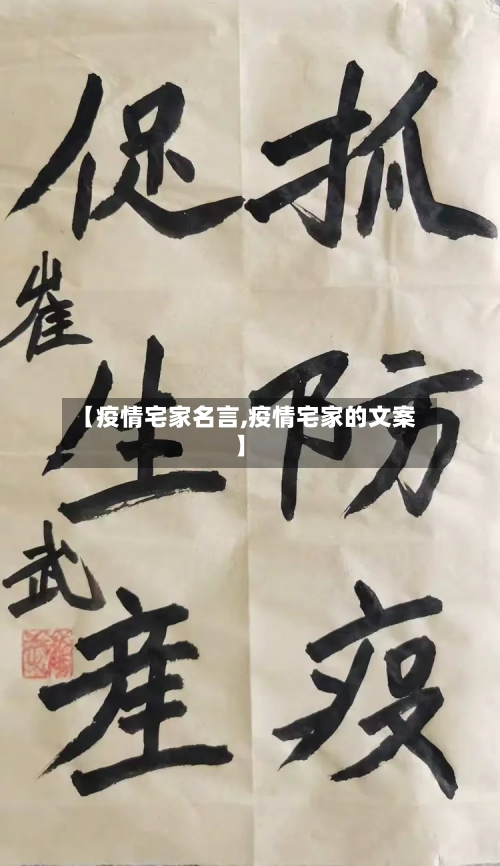 抓防疫
促生産
崔武
【疫情宅家名言,疫情宅家的文案
】